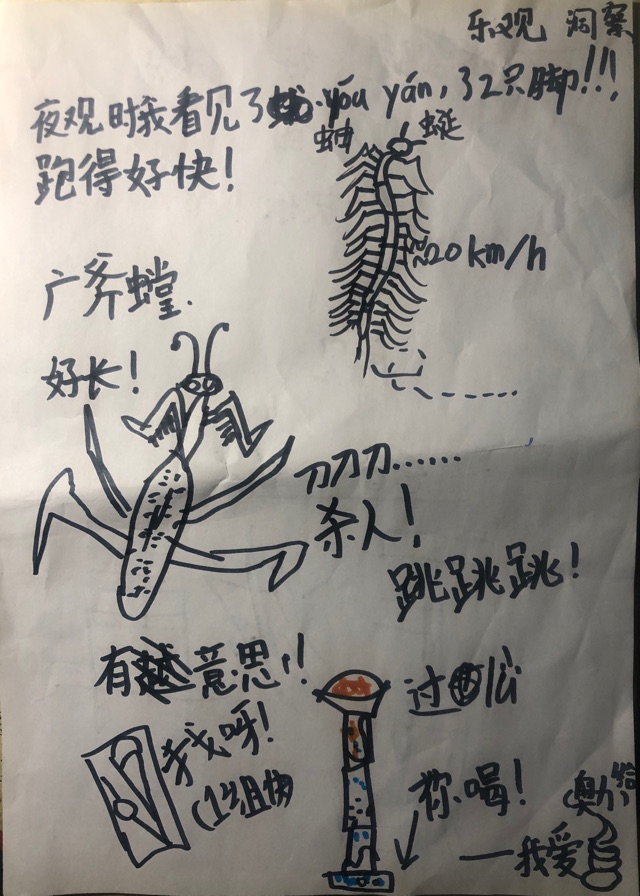 乐观 洞察
夜观时我看见了yóu yán,32只脚!!!
蚰 蜒
跑得好快!
≈20km/h
广斧螳.
好长!
刀刀刀……
杀人!
跳跳跳!
有意思!!
过
找呀!
你喝!
一我爱